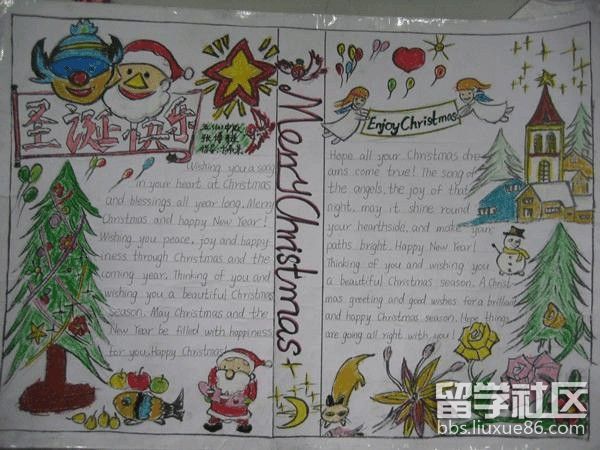 圣诞快乐
Merry Christmas
Enjoy Christmas
Wishing you a song
in your heart at Christmas
and blessings all year long. Merry
Christmas and happy New Year!
Wishing you peace, joy and happy
iness through Christmas and the
coming year. Thinking of you and
wishing you a beautiful Christmas
season. May Christmas and the
New Year be filled with happiness
for you. Happy Christmas
Hope all your Christmas dre
ams come true! The song of
the angels, the joy of that
night, may it shine round
your hearthside, and make your
paths bright. Happy New Year!
Thinking of you and wishing you
a beautiful Christmas season. A Christ
mas greeting and good wishes for a brilliant
and happy Christmas season. Hope things
are going all right with you!
留学社区
bbs.liuxue86.com